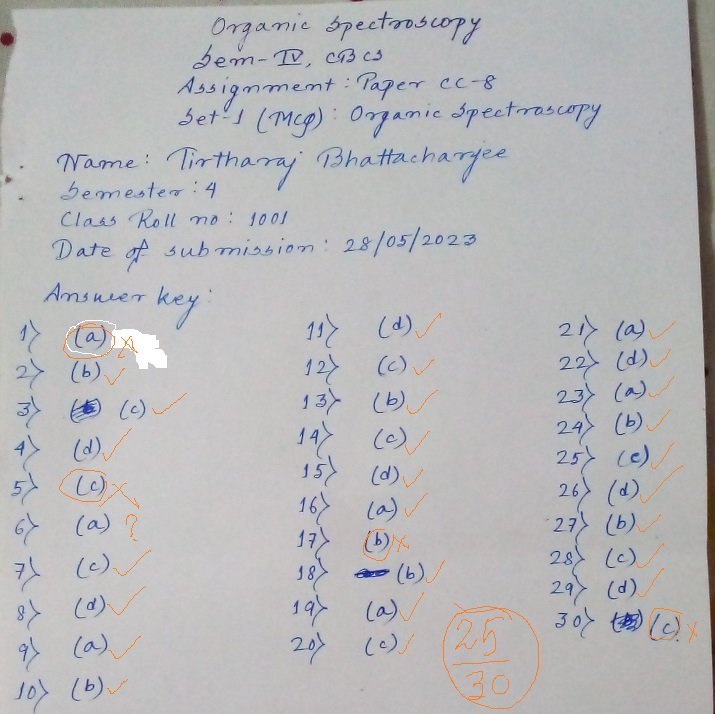 Organic Spectroscopy
Sem-IV, CBCS
Assignment: Paper CC-8
Set-1 (MCQ): Organic Spectroscopy
Name: Tirtharaj Bhattacharjee
Semester: 4
Class Roll no: 1001
Date of submission: 28/05/2023
Answer key:
1) (a) ×
2) (b) ✓
3) (c) ✓
4) (d) ✓
5) (c) ×
6) (a) ?
7) (c) ✓
8) (d) ✓
9) (a) ✓
10) (b) ✓
11) (d) ✓
12) (c) ✓
13) (b) ✓
14) (c) ✓
15) (d) ✓
16) (a) ✓
17) (b) ×
18) (b) ✓
19) (a) ✓
20) (c) ✓
21) (a) ✓
22) (d) ✓
23) (a) ✓
24) (b) ✓
25) (c) ✓
26) (d) ✓
27) (b) ✓
28) (c) ✓
29) (d) ✓
30) (c) ×
25
30